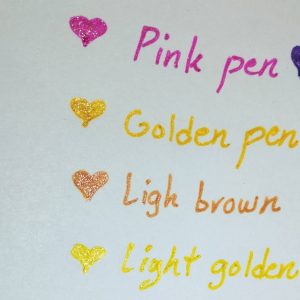 Pink pen
Golden pen
Ligh brown
Light golden